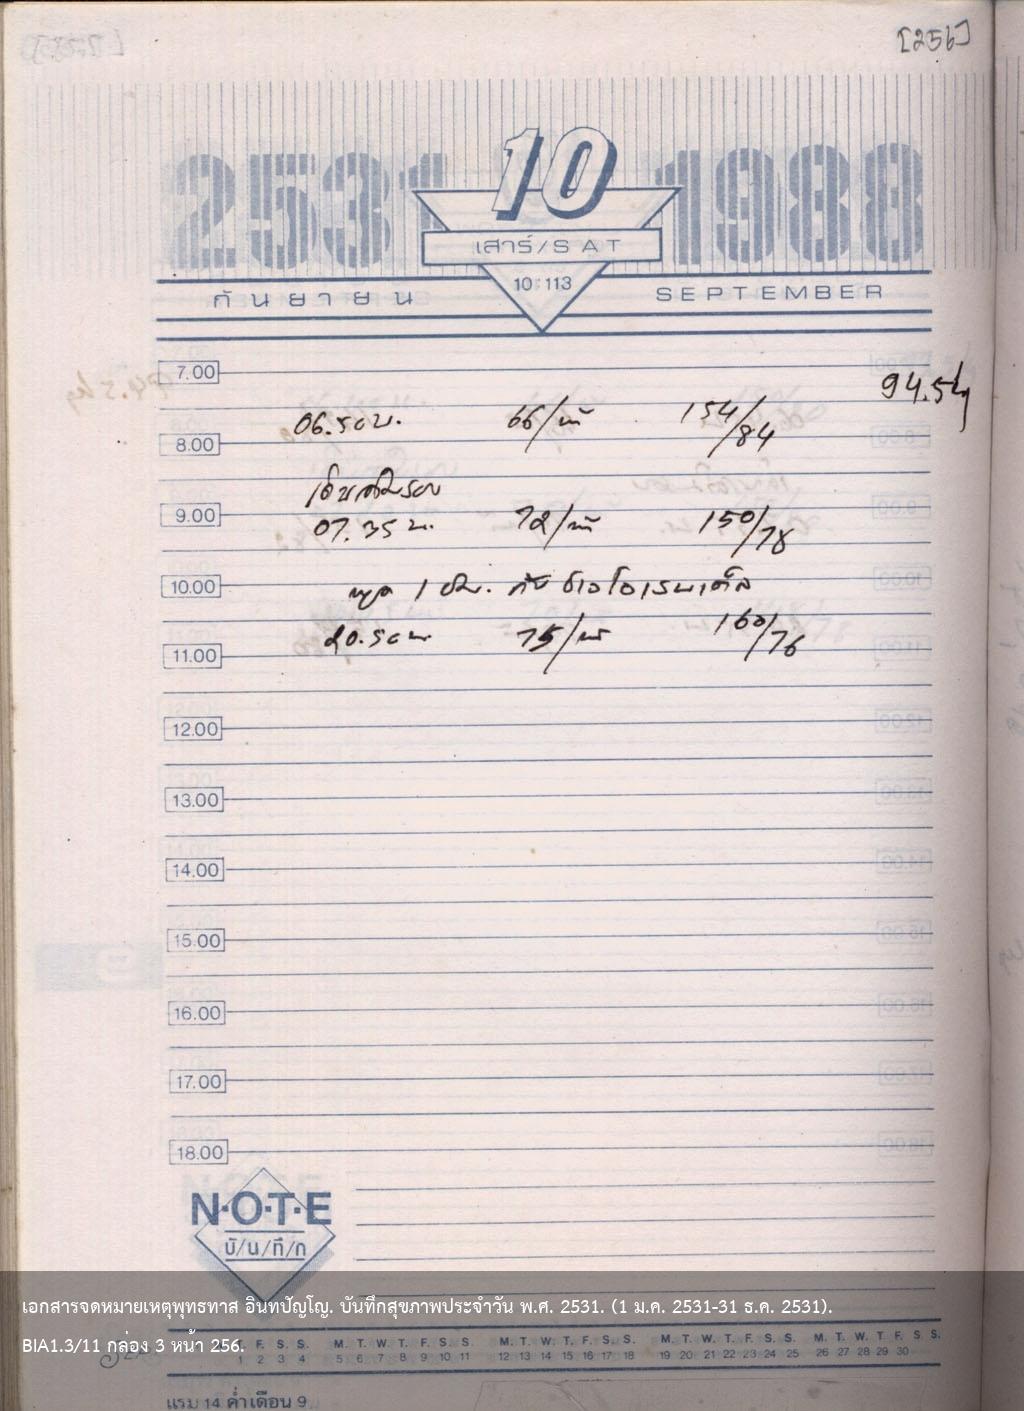 [256]
2531
10
1988
เสาร์/SAT
10:113
กันยายน
SEPTEMBER
7.00
94.5 kg
06.50 น. 66/น 154/84
8.00
เดินเสร็จ
9.00
07.35 น. 72/น 150/78
10.00
พูด 1 ชม. กับ
20.50 น. 75/น 160/76
11.00
12.00
13.00
14.00
15.00
16.00
17.00
18.00
N·O·T·E
บั/น/ทึ/ก
เอกสารจดหมายเหตุพุทธทาส อินทปัญโญ. บันทึกสุขภาพประจำวัน พ.ศ. 2531. (1 ม.ค. 2531-31 ธ.ค. 2531).
BIA1.3/11 กล่อง 3 หน้า 256.
F. S. S. M. T. W. T. F. S. S. M. T. W. T. F. S. S. M. T. W. T. F. S. S. M. T. W. T. F. S. S.
1 2 3 4 5 6 7 8 9 10 11 12 13 14 15 16 17 18 19 20 21 22 23 24 25 26 27 28 29 30
แรม 14 ค่ำเดือน 9